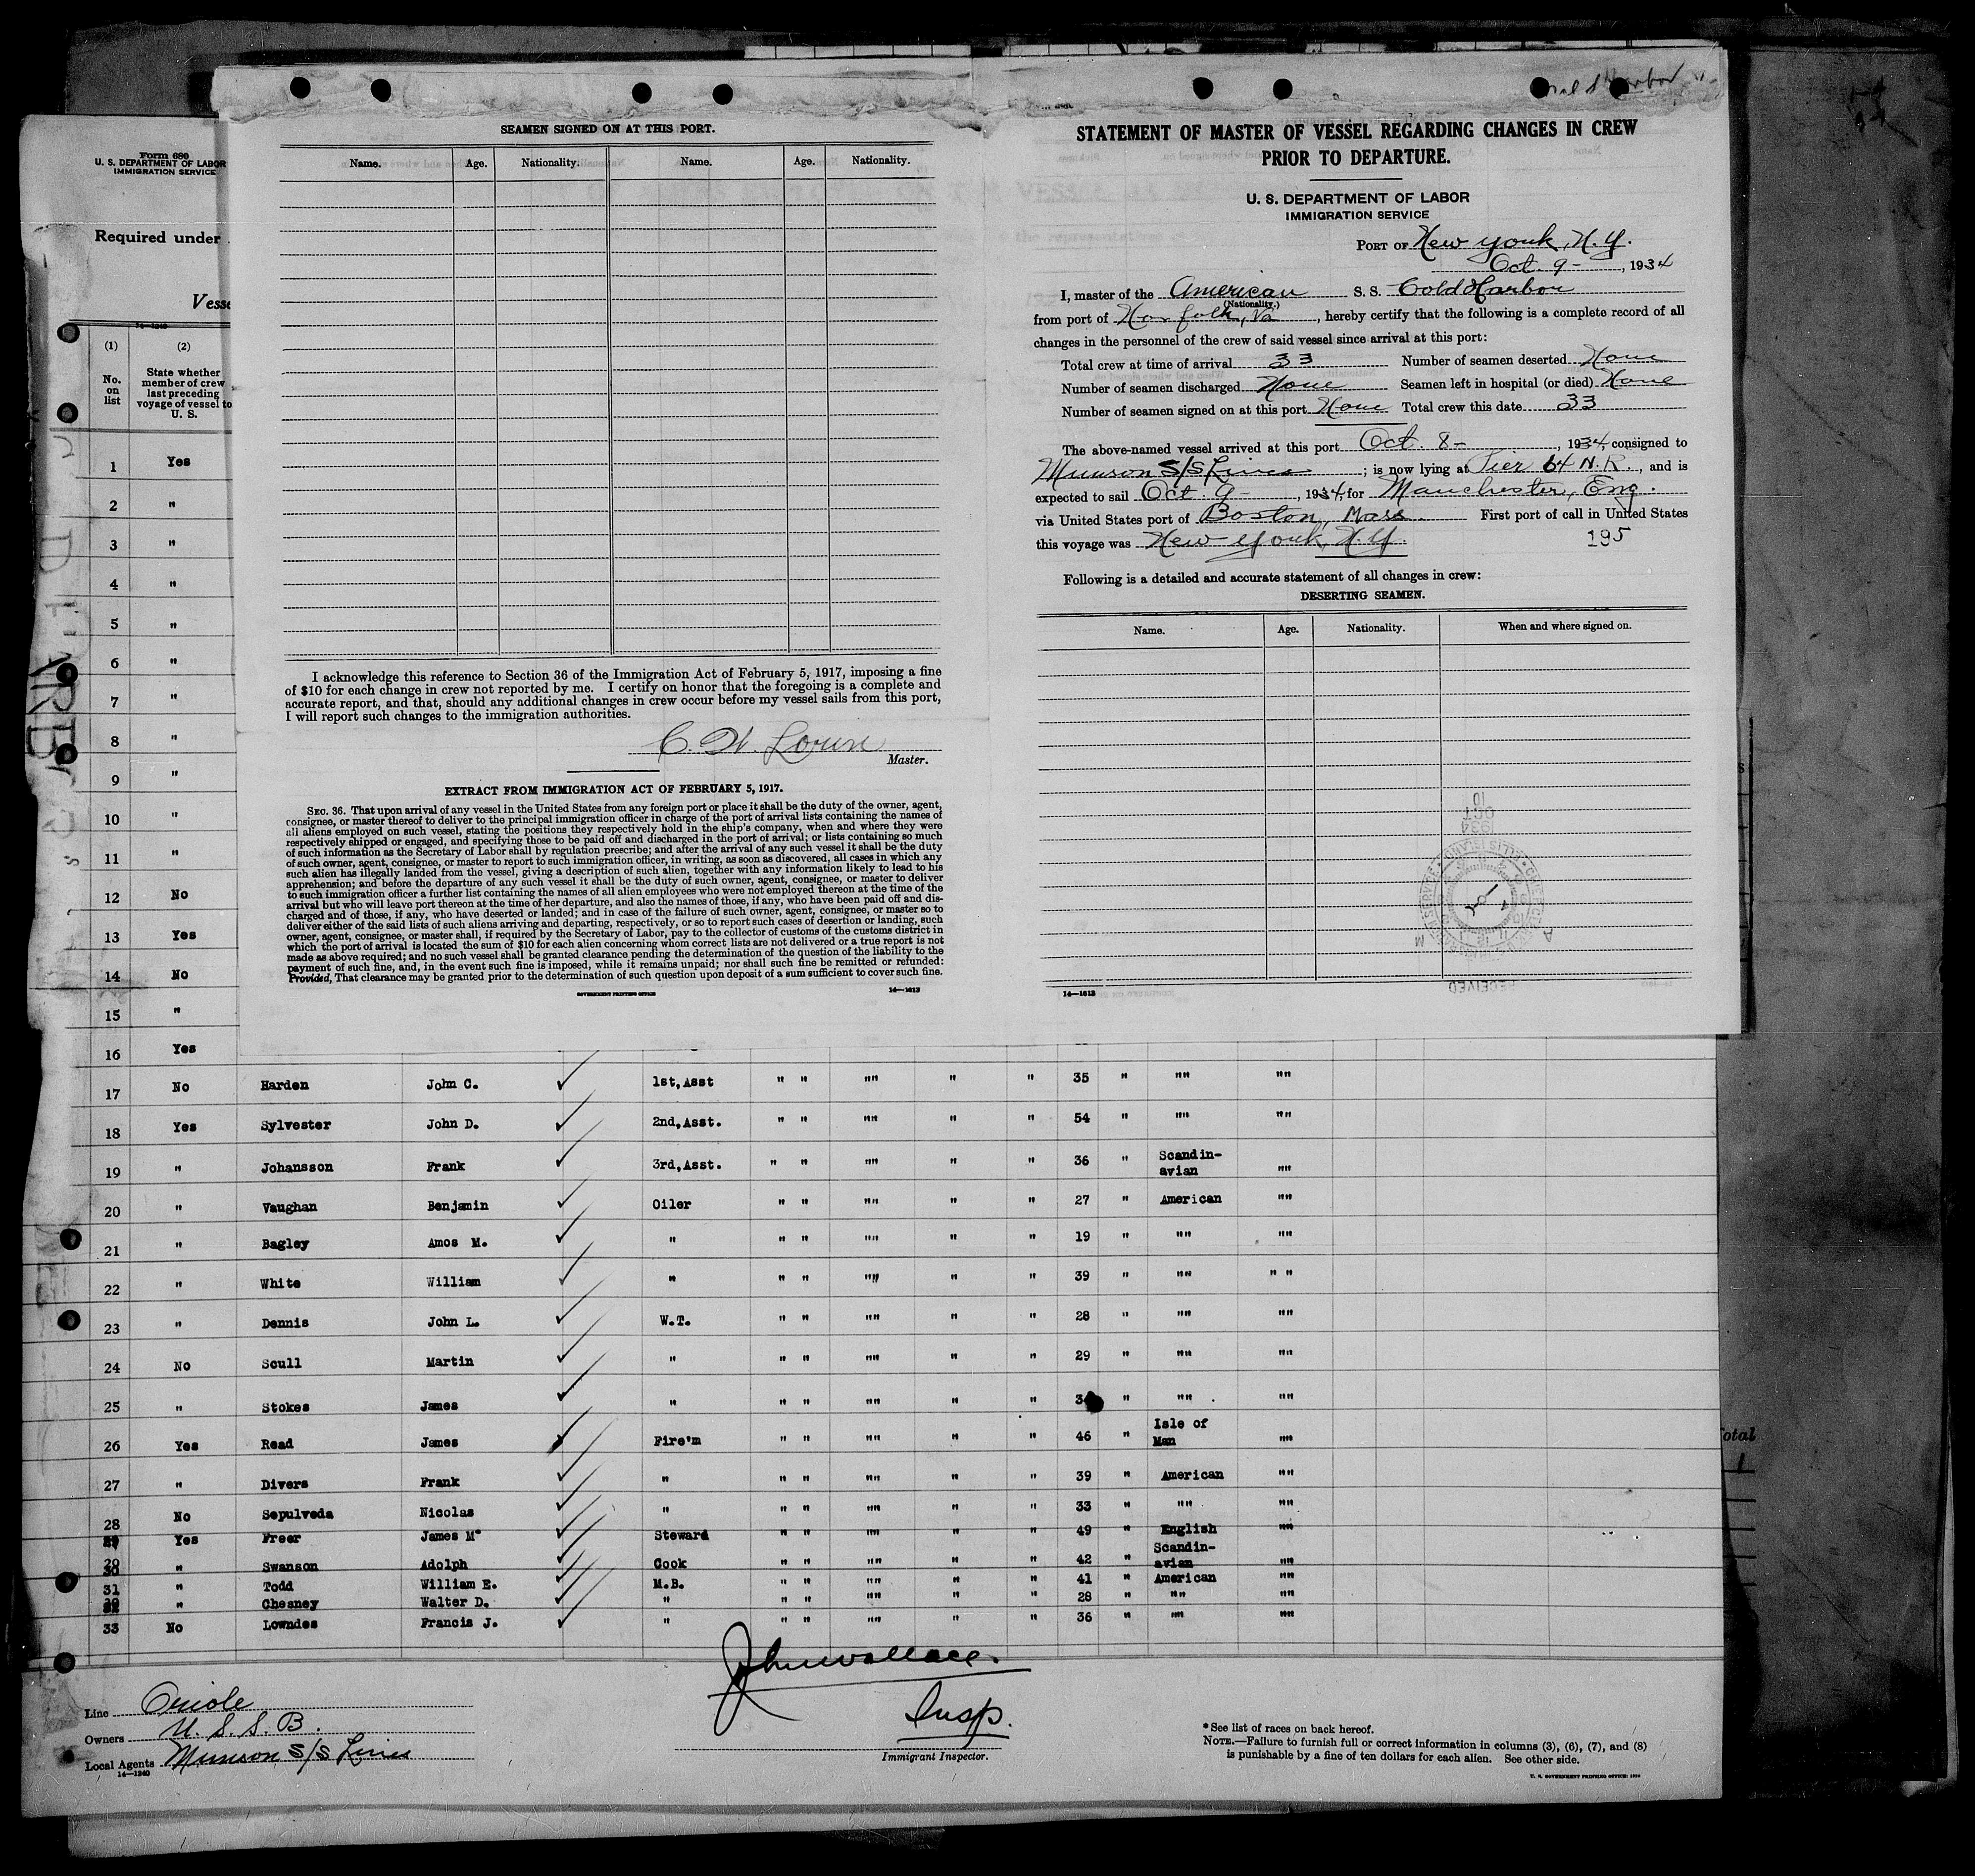 Form 680
U. S. DEPARTMENT OF LABOR
IMMIGRATION SERVICE
Required under
Vesse
14—1240
(1) (2)
No. on list
State whether member of crew last preceding voyage of vessel to U. S.
1 Yes
2 "
3 "
4 "
5 "
6 "
7 "
8 "
9 "
10 "
11 "
12 No
13 Yes
14 No
15 "
16 Yes
SEAMEN SIGNED ON AT THIS PORT.
Name. Age. Nationality. Name. Age. Nationality.
I acknowledge this reference to Section 36 of the Immigration Act of February 5, 1917, imposing a fine
of $10 for each change in crew not reported by me. I certify on honor that the foregoing is a complete and
accurate report, and that, should any additional changes in crew occur before my vessel sails from this port,
I will report such changes to the immigration authorities.
Master.
EXTRACT FROM IMMIGRATION ACT OF FEBRUARY 5, 1917.
SEC. 36. That upon arrival of any vessel in the United States from any foreign port or place it shall be the duty of the owner, agent,
consignee, or master thereof to deliver to the principal immigration officer in charge of the port of arrival lists containing the names of
all aliens employed on such vessel, stating the positions they respectively hold in the ship's company, when and where they were
respectively shipped or engaged, and specifying those to be paid off and discharged in the port of arrival; or lists containing so much
of such information as the Secretary of Labor shall by regulation prescribe; and after the arrival of any such vessel it shall be the duty
of such owner, agent, consignee, or master to report to such immigration officer, in writing, as soon as discovered, all cases in which any
such alien has illegally landed from the vessel, giving a description of such alien, together with any information likely to lead to his
apprehension; and before the departure of any such vessel it shall be the duty of such owner, agent, consignee, or master to deliver
to such immigration officer a further list containing the names of all alien employees who were not employed thereon at the time of the
arrival but who will leave port thereon at the time of her departure, and also the names of those, if any, who have been paid off and dis-
charged and of those, if any, who have deserted or landed; and in case of the failure of such owner, agent, consignee, or master so to
deliver either of the said lists of such aliens arriving and departing, respectively, or so to report such cases of desertion or landing, such
owner, agent, consignee, or master shall, if required by the Secretary of Labor, pay to the collector of customs of the customs district in
which the port of arrival is located the sum of $10 for each alien concerning whom correct lists are not delivered or a true report is not
made as above required; and no such vessel shall be granted clearance pending the determination of the question of the liability to the
payment of such fine, and, in the event such fine is imposed, while it remains unpaid; nor shall such fine be remitted or refunded:
Provided, That clearance may be granted prior to the determination of such question upon deposit of a sum sufficient to cover such fine.
GOVERNMENT PRINTING OFFICE 14—1613
STATEMENT OF MASTER OF VESSEL REGARDING CHANGES IN CREW
PRIOR TO DEPARTURE.
U. S. DEPARTMENT OF LABOR
IMMIGRATION SERVICE
PORT OF New York, N.Y.
Oct. 9-, 1934
I, master of the American S. S. Cold Harbor
(Nationality.)
from port of Norfolk, Va, hereby certify that the following is a complete record of all
changes in the personnel of the crew of said vessel since arrival at this port:
Total crew at time of arrival 33 Number of seamen deserted None
Number of seamen discharged None Seamen left in hospital (or died) None
Number of seamen signed on at this port None Total crew this date 33
The above-named vessel arrived at this port Oct. 8-, 1934, consigned to
Munson S/S Lines; is now lying at Pier 64 N.R., and is
expected to sail Oct 9-, 1934, for Manchester, Eng.
via United States port of Boston, Mass. First port of call in United States
this voyage was New York, N.Y. 195
Following is a detailed and accurate statement of all changes in crew:
DESERTING SEAMEN.
Name. Age. Nationality. When and where signed on.
14—1613
OCT 10
1934
ELLIS ISLAND
RECEIVED
17 No Harden John C. 1st,Asst " " "" " " 35 " "" ""
18 Yes Sylvester John D. 2nd,Asst. " " "" " " 54 " "" ""
19 " Johansson Frank 3rd,Asst. " " "" " " 36 " Scandin-avian ""
20 " Vaughan Benjamin Oiler " " "" " " 27 " American ""
21 " Bagley Amos M. " " " "" " " 19 " "" ""
22 " White William " " " "" " " 39 " "" " "
23 " Dennis John L. W.T. " " "" " " 28 " "" ""
24 No Scull Martin " " " "" " " 29 " "" ""
25 " Stokes James " " " "" " " " "" ""
26 Yes Read James Fire'm " " "" " " 46 " Isle of Man ""
27 " Divers Frank " " " "" " " 39 " American ""
28 No Sepulveda Nicolas " " " "" " " 33 " "" ""
Yes Freer James M" Steward " " "" " " 49 " English ""
30 " Swanson Adolph Cook " " "" " " 42 " Scandin-avian ""
31 " Todd William E. M.B. " " "" " " 41 " American ""
" Chesney Walter D. " " " "" " " 28 " "" ""
33 No Lowndes Francis J. " " " "" " " 36 " "" ""
John Wallace.
Insp.
Immigrant Inspector.
Line Oriole
Owners U.S.S.B.
Local Agents Munson S/S Lines
14—1240
*See list of races on back hereof.
NOTE.—Failure to furnish full or correct information in columns (3), (6), (7), and (8)
is punishable by a fine of ten dollars for each alien. See other side.
U. S. GOVERNMENT PRINTING OFFICE: